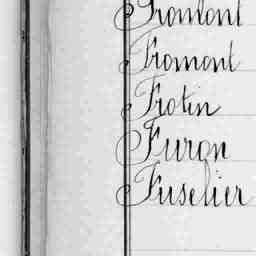 Fromont
Froment
Frotin
Furon
Fuselier